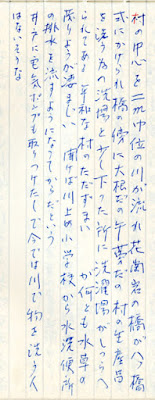 村の中心を二米中位の川が流れ花崗岩の橋が八つ
式にかけられ橋の傍に大根だの午蒡だの村の生産品
を洗う為の洗場と少し下った所に洗濯場がしつらへ
られてある 平和な村のたたずまい が何とも水草の
茂りようが凄まじい 聞けば川上の小学校から水洗便所
の排水を流すようになってからだという
井戸に電気ポンプも取りつけたしで今では川で物を洗う人
はないそうな